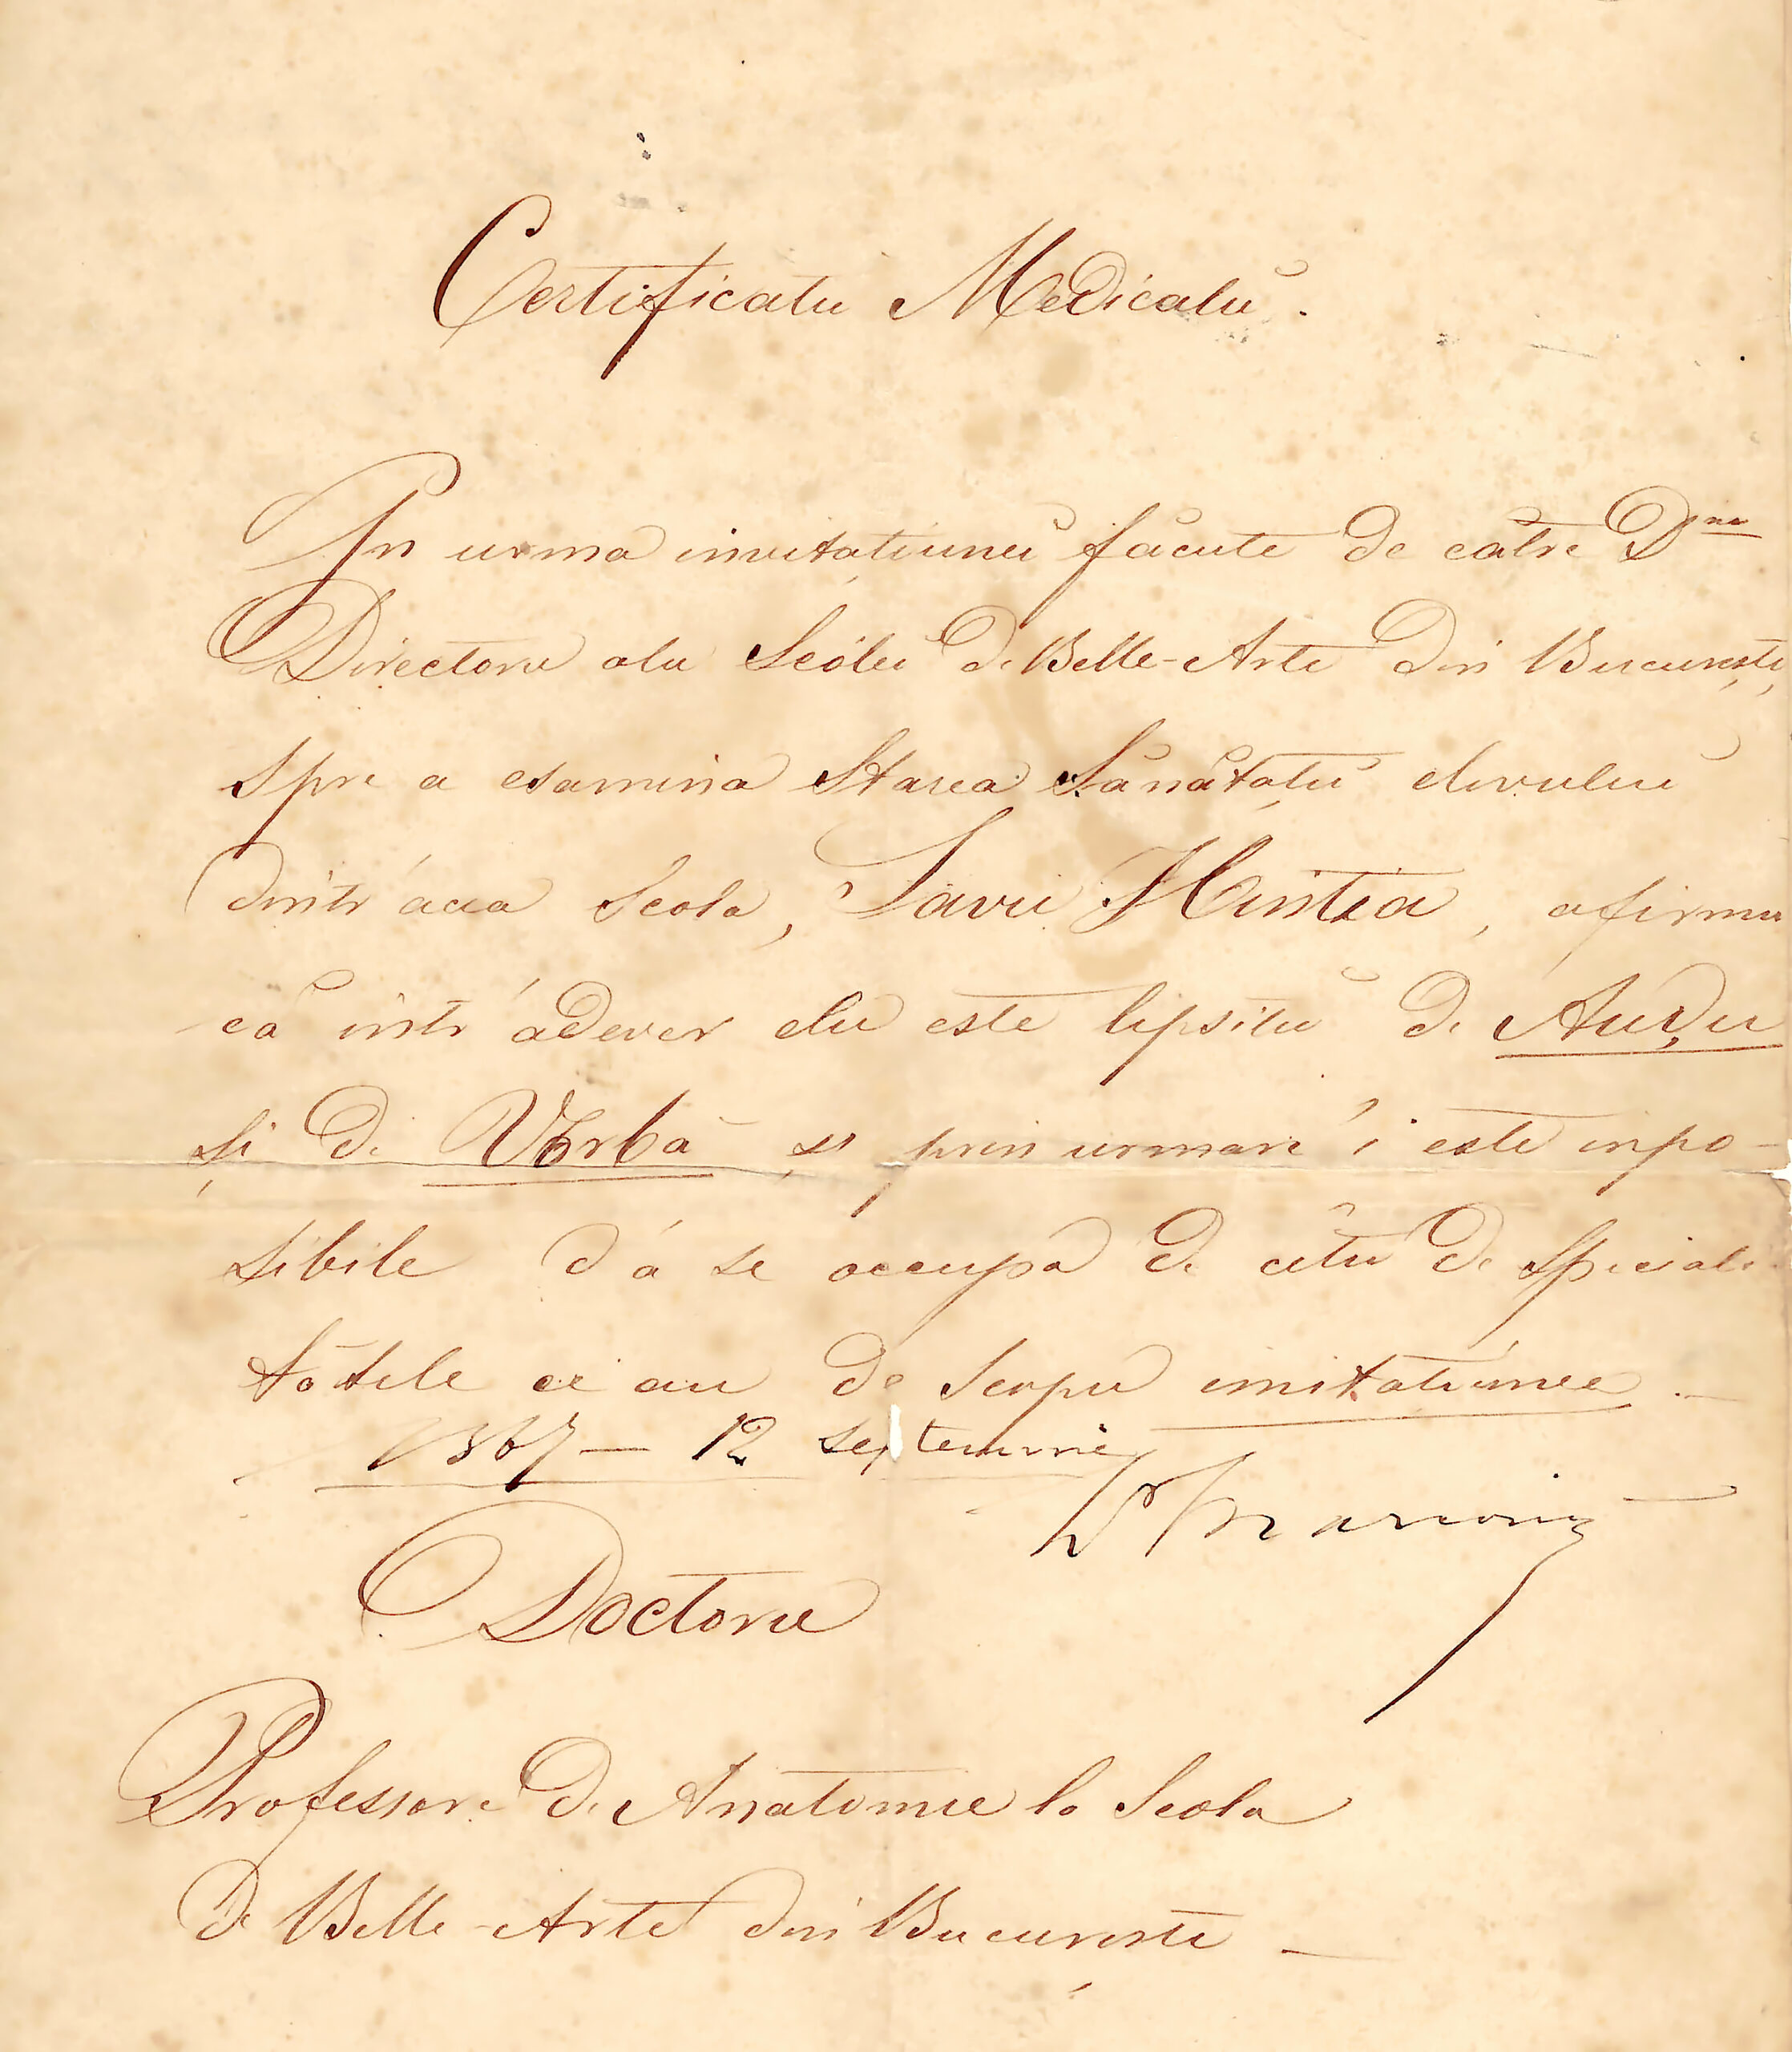 Certificatu Medicalŭ.
In urma invitaţiuneĭ făcute de cătrĕ D<sup>nu</sup>
Directoru alu Scólei de Belle-Arte din Bucureşti,
spre a esamina starea sănătăţiĭ elevuluĭ
dintr'acea Scola, Savu Hentia, afirmu
că intr'adever elu este lipsitŭ de Audu
şi de Vorbă şi prin urmare 'i este inpo-
sibile d'a se occupa de câtu de Speciali
tăţile ce au de scopu imitatiunea. —
1867 — 12 Septemvrie
Doctoru
Professore de Anatomie la Scola
de Belle-Arte din Bucuresti —